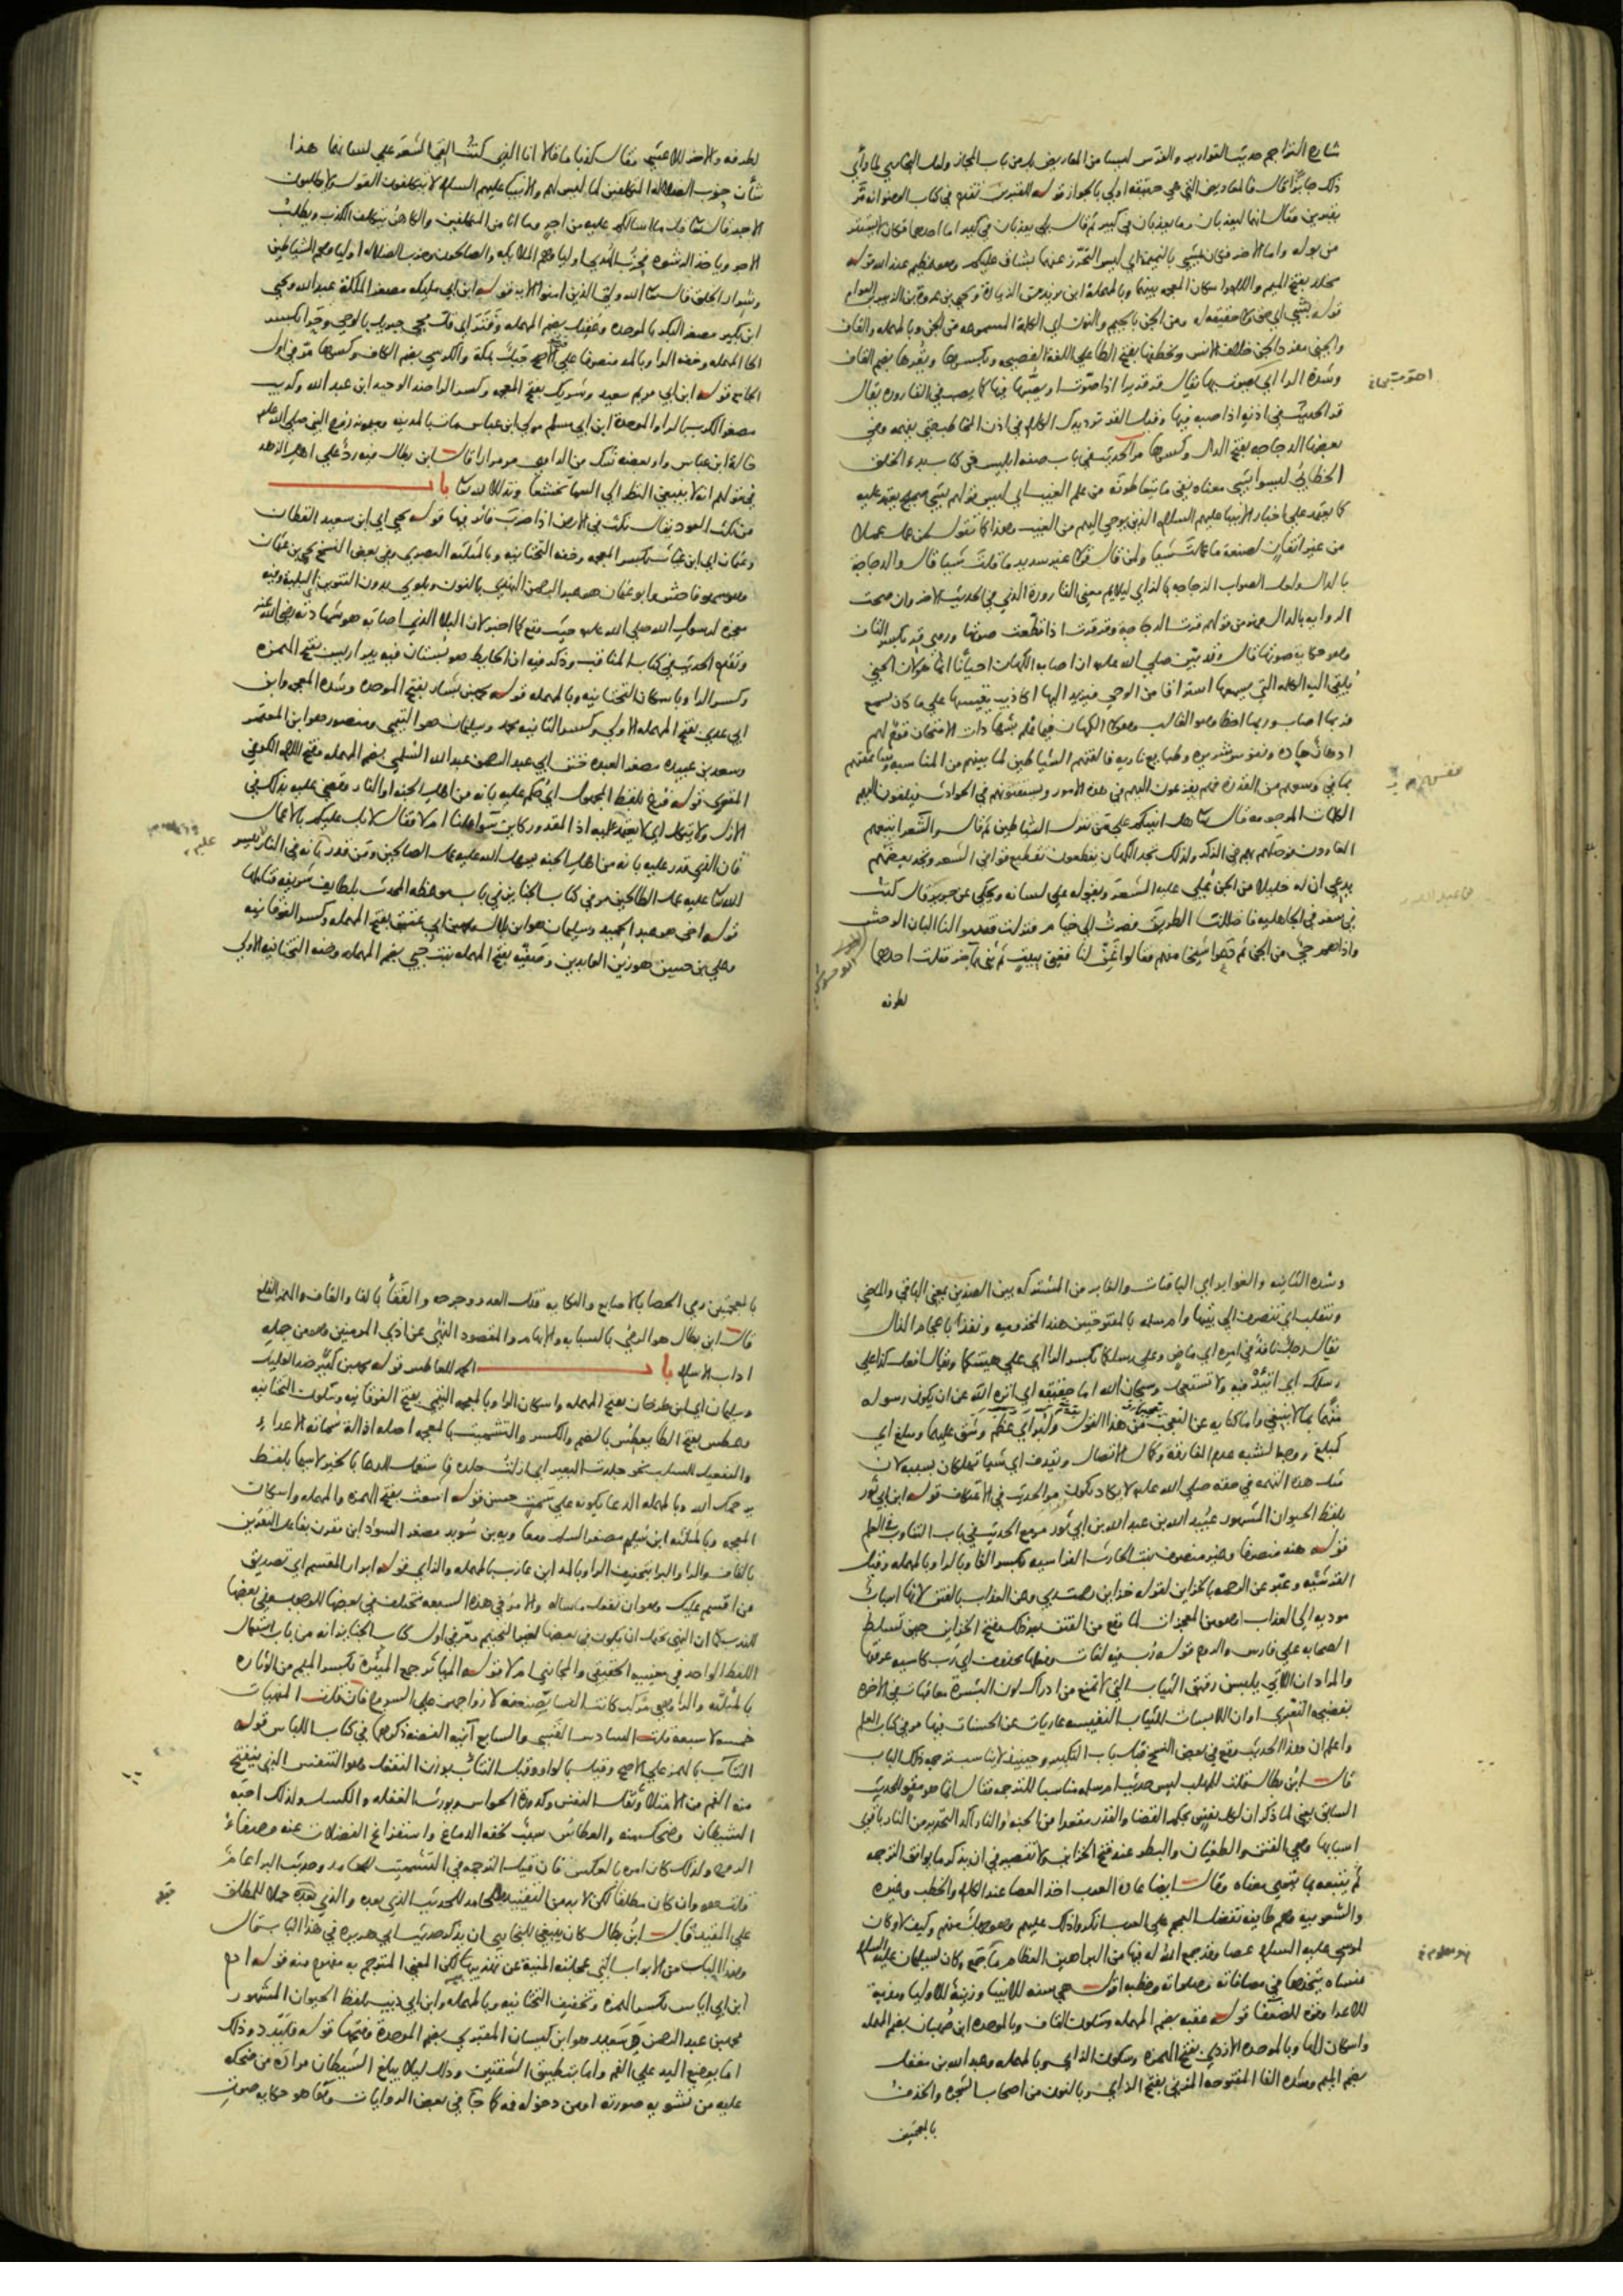 شارع التراجم حديث القوارير والفرس ليسا من المعاريض بل من باب المجاز ولعل البخاري لما رأى
ذلك جايزا قال فالمعاريض التي هي حقيقة اولى بالجواز قوله للقبرين تقدم في كتاب الوضو انه مر
بقبرين فقال انهما ليعذبان وما يعذبان في كبير ثم قال بلى يعذبان في كبير اما احدهما فكان لا يستتر
من بوله واما الاخر فكان يمشي بالنميمة اي ليس التحرز عنهما بشاق عليكم وهو عظيم عند الله قوله
مخلد بفتح الميم واللام واسكان المعجمة بينهما وبالمهملة ابن يزيد من الزيادة ويحيى بن عروة بن الزبير بن العوام
قوله بشي اي حق لا حقيقة له ومن الجن بالجيم والنون اي الكلمة المسموعة من الجن وبالمهملة والقاف
والجني مفرد الجن خلاف الانس ويخطفها بفتح الطا على اللغة الفصيحة وبكسرها ويقرها بضم القاف
وشدة الرا اي يصوت بها يقال قر قريرا اذا صوت او يصبها فيها كما يصب في القارورة يقال
قر الحديث في اذنه اذا صبه فيها وقيل القر ترديدك الكلام في اذن المخاطب حتى يفهمه وفي
بعضها الدجاجة بفتح الدال وكسرها مر الحديث في باب صفة ابليس في كتاب بدء الخلق
الخطابي ليسوا بشي معناه نفي ما يتعاطونه من علم الغيب اي ليس قولهم بشي صحيح يعتمد عليه
كما يعتمد على اخبار الانبيا عليهم السلام الذين يوحى اليهم من الغيب وهذا كما تقول لمن عمل عملا
من غير اتقان لصنعة ما عملت شيا ولمن قال قولا غير سديد ما قلت شيا قال والدجاجة
بالدال ولعل الصواب الزجاجة بالزاي ليلايم معنى القارورة الذي في الحديث الاخر وان صحت
الرواية بالدال فهو من قولهم قرت الدجاجة وقرقرت اذا قطعت صوتها وروي قر بكسر القاف
وهو حكاية صوتها قال وقد بين صلى الله عليه ان اصابة الكهان احيانا انما هو لان الجني
يلقي اليه الكلمة التي يسمعها استراقا من الوحي فيزيد اليها اكاذيب يقيسها على ما كان سمع
فربما اصاب وربما اخطا وهو الغالب وهولا الكهان فيما علم بشهادات الامتحان قوم لهم
اذهان حادة ونفوس شريرة وطبايع نارية فالفتهم الشياطين لما بينهم من المناسبة
بما في وسعهم من القدرة فهم يفزعون اليهم في هذه الامور ويستفتونهم في الحوادث فيلقون اليهم
الكلمات المرجومة قال تعالى هل انبيكم على من تنزل الشياطين ثم قال والشعرا يتبعهم
الغاوون فوصلهم بهم في الذكر ولذلك تجد الكهان يقطعون تقطيع قوافي الشعر وتجد بعضهم
يدعي ان له خليلا من الجن يملي عليه الشعر ويقوله على لسانه ويحكى عن جرير قال كنت
في سفر في الجاهلية فاضللت الطريق فصرت الى خيام فنزلت فقدموا الينا البان الوحش
واذا هم حي من الجن ثم دعوا شيخا منهم فقالوا غن لنا فغنى ببيت ثم ثنى باخر فقلت احدهما
لطرفة
لطرفة والاخر للاعشى فقال كذبا ما قالا انا الذي كنت القي الشعر على لسانهما هذا
شان حزب الضلالة المتكلفين لما ليس لهم والانبيا عليهم السلام لا يتكلفون القول ولا يطلبون
الاجر قال تعالى قل ما اسالكم عليه من اجر وما انا من المتكلفين والكاهن يتكلف الكذب ويطلب
الاجر وياخذ الرشوة فحزب الهدى اولياوهم الملايكة والصالحون وحزب الضلالة اولياوهم الشياطين
وشرار الخلق قال تعالى الله ولي الذين امنوا الاية قوله ابن ابي مليكة مصغر الملكة عبد الله ويحيى
ابن بكير مصغر البكر بالموحدة وعقيل بضم المهملة وفتر اي قل مجي جبريل بالوحي وحرا بكسر
الحا المهملة وخفة الرا وبالمد منصرفا على الاصح جبل بمكة والكرسي بضم الكاف وكسرها مر في اول
الجامع قوله ابن ابي مريم سعيد وشريك بفتح المعجمة وكسر الرا ضد الوحيد ابن عبد الله وكريب
مصغر الكرب بالرا والموحدة ابن ابي مسلم مولى ابن عباس مات بالمدينة وميمونة زوج النبي صلى الله عليه
خالة ابن عباس واو بعضه شك من الراوي مر مرارا قال ابن بطال فيه رد على اهل الزهد
في قولهم انه لا ينبغي النظر الى السما تخشعا وتذللا لله تعالى باب
من نكت العود يقال نكت في الارض اذا ضرب فاثر فيها قوله يحيى اي ابن سعيد القطان
وعثمان اي ابن غياث بكسر المعجمة وخفة التحتانية وبالمثلثة البصري وفي بعض النسخ يحيى بن عثمان
وهو سهو فاحش وابو عثمان هو عبد الرحمن النهدي بالنون وبلوى بدون التنوين البلية وفيه
معجزة لرسول الله صلى الله عليه حيث وقع كما اخبر لان البلا الذي اصابه هو شهادته رضي الله عنه
وتقدم الحديث في كتاب المناقب وذكر فيه ان الحايط هو بستان فيه بير اريس بفتح الهمزة
وكسر الرا وباسكان التحتانية وبالمهملة قوله محمد بن بشار بفتح الموحدة وشدة المعجمة وابن
ابي عدي بفتح المهملة الاولى وكسر الثانية محمد وسليمان هو التيمي ومنصور هو ابن المعتمر
وسعد بن عبيدة مصغر العبدة ختن ابي عبد الرحمن عبد الله السلمي بضم المهملة وفتح اللام الكوفي
المقري قوله فرغ بلفظ المجهول اي حكم عليه بانه من اهل الجنة او النار وقضى عليه بذلك في
الازل ولا يتكل اي لا يعتمد عليه اذا المقدور كاين سوا عملنا ام لا فقال لا بل عليكم بالاعمال
فان الذي قدر عليه بانه من اهل الجنة يسهل الله عليه عمل الصالحين ومن قدر بانه في النار ييسر
الله تعالى عليه عمل الطالحين مر في كتاب الجنايز في باب موعظة المحدث بلطايف شريفة فتاملها
قوله اخي هو عبد الحميد وسليمان هو ابن بلال ومحمد بن ابي عتيق بفتح المهملة وكسر الفوقانية
وعلي بن حسين هو زين العابدين وصفية بفتح المهملة بنت حيي بضم المهملة وخفة التحتانية الاولى
وشدة الثانية والغوابر اي الباقيات والغابر من المشتركة بين الضدين بمعنى الباقي والماضي
وتنقلب اي تنصرف الى بيتها وام سلمة بالمفتوحتين هند المخزومية ونفذا باعجام الذال
يقال رجل نافذ في امره اي ماض وعلى رسلكما بكسر الرا اي على هينتكما ويقال افعل كذا على
رسلك اي اتيد فيه ولا تستعجل وسبحان الله اما حقيقة اي انزه الله عن ان يكون رسوله
متهما بما لا ينبغي واما كناية عن التعجب من هذا القول وكبر اي عظم وشق عليهما ومبلغ اي
كمبلغ ووجه الشبه عدم المفارقة وكمال الاتصال ويقذف اي شيا تهلكان بسببه لان
مثل هذه التهمة في حقه صلى الله عليه لا يكاد يكون مر الحديث في الاعتكاف قوله ابن ابي ثور
بلفظ الحيوان المشهور عبيد الله بن عبد الله بن ابي ثور مر مع الحديث في باب التناوب في العلم
قوله هند منصرفا وغير منصرف بنت الحارث الفراسية بكسر الفا وبالرا وبالمهملة وقيل
القرشية وعبر عن الرحمة بالخزاين لقوله خزاين رحمة ربي وعن العذاب بالفتن لانها اسباب
مودية الى العذاب او هو من المعجزات لما وقع من الفتن بعد ذلك وفتح الخزاين حين تسلط
الصحابة على فارس والروم قوله رب فيه لغات وفعلها محذوف اي رب كاسية عرفتها
والمراد ان اللاتي يلبسن رقيق الثياب التي لا تمنع من ادراك لون البشرة معاقبات في الاخرة
بفضيحة التعري او ان اللابسات للثياب النفيسة عاريات عن الحسنات فيها مر في كتاب العلم
واعلم ان هذا الحديث وقع في بعض النسخ قبل باب التكبير وحينيذ لا يناسب ترجمة ذلك الباب
قال ابن بطال قلت للمهلب ليس حديث ام سلمة مناسبا للترجمة فقال انما هو مقو للحديث
السابق يعني لما ذكر ان لكل نفس بحكم القضا والقدر مقعدا من الجنة والنار اكد التحذير من النار باقوى
اسبابها وهي الفتن والطغيان والبطر عند فتح الخزاين ولا تقصير في ان يذكر ما يوافق الترجمة
ثم يتبعه بما يقوي معناه وقال ايضا عادة العرب اخذ العصا عند الكلام والخطب وغيره
والشعوبية وهم طايفة تفضل العجم على العرب انكروا ذلك عليهم وهو جهل منهم وكيف لا وكان
لموسى عليه السلام عصا وقد جمع الله له فيها من البراهين العظام ما جمع وكان لسليمان عليه السلام
منساة يتخذها في مقاماته وصلواته وخطبه اقول هي سنة للانبيا وزينة للاوليا ومذبة
للاعدا وقوة للضعفا قوله عقبة بضم المهملة وسكون القاف وبالموحدة ابن صهبان بضم المهملة
واسكان الها وبالموحدة الازدي بفتح الهمزة وسكون الزاي وبالمهملة وعبد الله بن مغفل
بضم الميم وشدة الفا المفتوحة المزني بفتح الزاي وبالنون من اصحاب الشجرة والخذف
بالمعجمتين
بالمعجمتين رمي الحصا بالاصابع والنكاية قتل العدو وجرحه والفقا بالفا والقاف والهمز القلع
قال ابن بطال هو الرمي بالسبابة والابهام والمقصود النهي عن اذى المومنين وهو من جملة
اداب الاسلام باب الحمد للعاطس قوله محمد بن كثير ضد القليل
وسليمان اي ابن طرخان بفتح المهملة واسكان الرا وبالمعجمة التيمي بفتح الفوقانية وسكون التحتانية
وعطس بفتح الطا يعطس بالضم والكسر والتشميت بالمعجمة اصله ازالة شماتة الاعدا
والتفعيل للسلب نحو جلدت البعير اي ازلت جلده فاستعمل للدعا بالخير لا سيما بلفظ
يرحمك الله وبالمهملة الدعا بكونه على سمت حسن قوله اشعث بفتح الهمزة والمهملة واسكان
المعجمة وبالمثلثة ابن سليم مصغر السلم ومعاوية بن سويد مصغر السواد ابن مقرن بفاعل التقرين
بالقاف والرا والبرا بتخفيف الرا وبالمد ابن عازب بالمهملة والزاي قوله ابرار المقسم اي تصديق
من اقسم عليك وهو ان تفعل ما ساله والامر في هذه السبعة مختلف في بعضها للوجوب وفي بعضها
للندب كما ان النهي يحتمل ان يكون في بعضها لغير التحريم مر في اول كتاب الجنايز انه من باب استعمال
اللفظ الواحد في معنييه الحقيقي والمجازي ام لا قوله المياثر جمع الميثرة بكسر الميم من الوثارة
بالمثلثة والرا وهي مركب كانت النسا يصنعنه لازواجهن على السروج فان قلت المنهيات
خمسة لا سبعة قلت السادس القسي والسابع انية الفضة ذكرهما في كتاب اللباس قوله
التثاوب بالهمز على الاصح وقيل بالواو وقيل التثاب بوزن التفعل وهو التنفس الذي ينفتح
منه الفم من الامتلا وثقل النفس وكدورة الحواس ويورث الغفلة والكسل ولذلك احبه
الشيطان وضحك منه والعطاس سبب لخفة الدماغ واستفراغ الفضلات عنه وصفا
الروح ولذلك كان امره بالعكس فان قيل الترجمة في التشميت للحامد وحديث البرا عام
قلت هو وان كان مطلقا لكن لا بد من التقييد بالحامد للحديث الذي بعده والذي بعده حملا للمطلق
على المقيد قال ابن بطال كان ينبغي للبخاري ان يذكر حديث ابي هريرة في هذا الباب قال
وهذا الباب من الابواب التي عجلته المنية عن تهذيبها لكن المعنى المترجم به مفهوم منه قوله ادم
ابن ابي اياس بكسر الهمزة وتخفيف التحتانية وبالمهملة وابن ابي ذيب بلفظ الحيوان المشهور
محمد بن عبد الرحمن وسعيد هو ابن كيسان المقبري بضم الموحدة وفتحها قوله فليرده وذلك
اما بوضع اليد على الفم واما بتطبيق الشفتين وذلك ليلا يبلغ الشيطان مراده من ضحكه
عليه من تشويه صورته او من دخوله فمه كما جا في بعض الروايات وها هو حكاية صوت